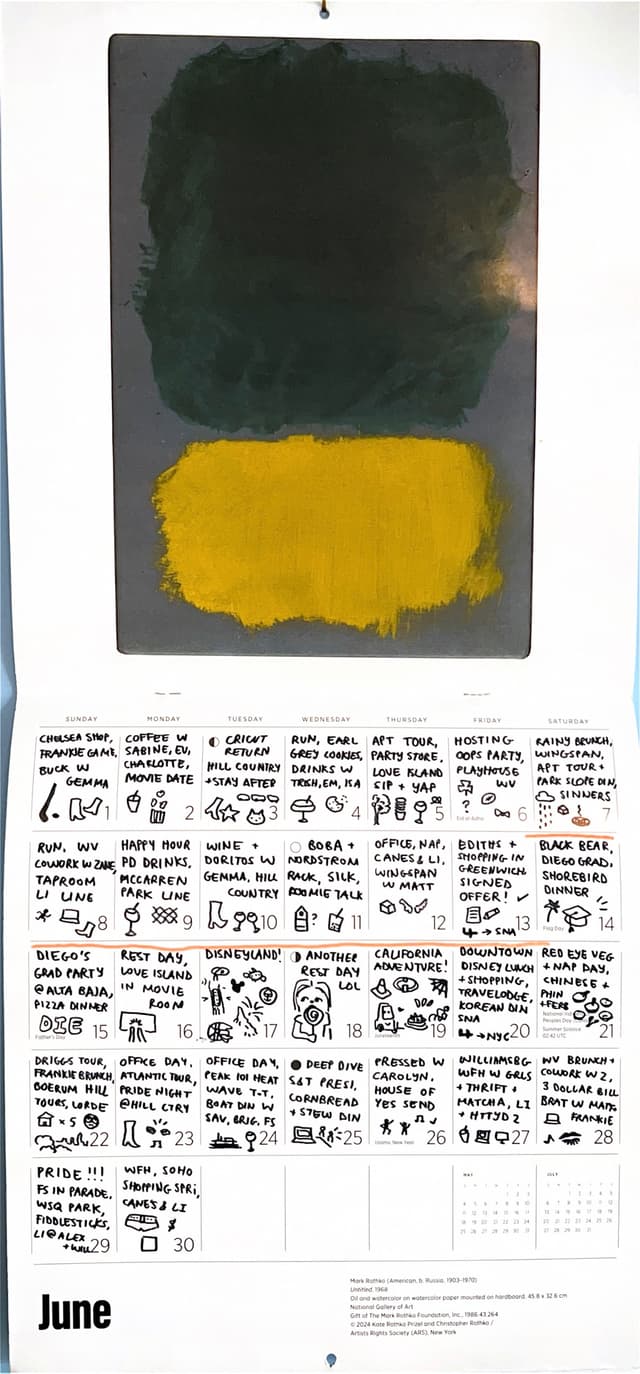 SUNDAY MONDAY TUESDAY WEDNESDAY THURSDAY FRIDAY SATURDAY
CHELSEA SHOP,
FRANKIE GAME,
BUCK W
GEMMA
1
COFFEE W
SABINE, EV,
CHARLOTTE,
MOVIE DATE
2
CRICUT
RETURN
HILL COUNTRY
+STAY AFTER
3
RUN, EARL
GREY COOKIES,
DRINKS W
TRISH, EM, ISA
4
APT TOUR,
PARTY STORE,
LOVE ISLAND
SIP + YAP
5
HOSTING
OOPS PARTY,
PLAYHOUSE
WV
?
Eid al-Adha
6
RAINY BRUNCH,
WINGSPAN,
APT TOUR +
PARK SLOPE DIN,
SINNERS
7
RUN, WV
COWORK W ZANE,
TAPROOM
LI LINE
8
HAPPY HOUR
PD DRINKS,
MCCARREN
PARK LINE
9
WINE +
DORITOS W
GEMMA, HILL
COUNTRY
10
BOBA +
NORDSTROM
RACK, SILK,
ROOMIE TALK
?
11
OFFICE, NAP,
CANES & LI,
WINGSPAN
W MATT
12
EDITHS +
SHOPPING IN
GREENWICH
SIGNED
OFFER!
→ SNA
13
BLACK BEAR,
DIEGO GRAD,
SHOREBIRD
DINNER
Flag Day
14
DIEGO'S
GRAD PARTY
@ ALTA BAJA,
PIZZA DINNER
DIE
Father's Day
15
REST DAY,
LOVE ISLAND
IN MOVIE
ROOM
16
DISNEYLAND!
17
ANOTHER
REST DAY
LOL
18
CALIFORNIA
ADVENTURE!
Juneteenth
19
DOWNTOWN
DISNEY LUNCH
+SHOPPING,
TRAVELODGE,
KOREAN DIN
SNA
→NYC
20
RED EYE VEG
+ NAP DAY,
CHINESE +
PHIN
+FERB
Summer Solstice
02:42 UTC
21
DRIGGS TOUR,
FRANKIE BRUNCH,
BOERUM HILL
TOURS, LORDE
x 5
22
OFFICE DAY,
ATLANTIC TOUR,
PRIDE NIGHT
@HILL CTRY
23
OFFICE DAY,
PEAK 101 HEAT
WAVE T-T,
BOAT DIN W
SAV, BRIG, FS
24
DEEP DIVE
S&T PRESI,
CORNBREAD
+ STEW DIN
25
PRESSED W
CAROLYN,
HOUSE OF
YES SEND
Islamic New Year
26
WILLIAMSBG
WFH W GRLS
+ THRIFT +
MATCHA, LI
+ HTTYD 2
27
WV BRUNCH +
COWORK W Z,
3 DOLLAR BILL
BRAT W MATT
FRANKIE
28
PRIDE!!!
FS IN PARADE,
WSQ PARK,
FIDDLESTICKS,
LI@ALEX
29
WFH, SOHO
SHOPPING SPRI,
CANE'S & LI
$
30
MAY
JULY
June
Mark Rothko (American, b. Russia, 1903–1970)
Untitled, 1968
Oil and watercolor on watercolor paper mounted on hardboard, 45.8 x 32.6 cm
National Gallery of Art
Gift of The Mark Rothko Foundation, Inc., 1986.43.264
© 2024 Kate Rothko Prizel and Christopher Rothko /
Artists Rights Society (ARS), New York